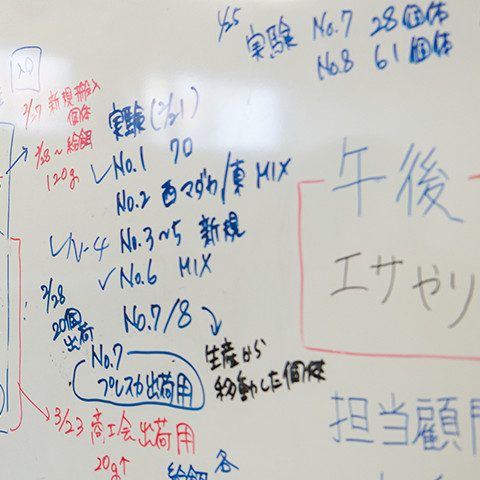 1/25
実験 No.7 28個体
No.8 61個体
2/27 新規搬入
個体
2/28~給餌
120g
実験(2/21)
No.1 70
No.2 西マダカ/東 MIX
No.3~5 新規
No.6 MIX
No.7/8
生産から
移動した個体
2/28
20個
出荷
No.7
プレスカ出荷用
3/23 商工会出荷用
20g↑
給餌 各
午後
エサやり
担当顧問